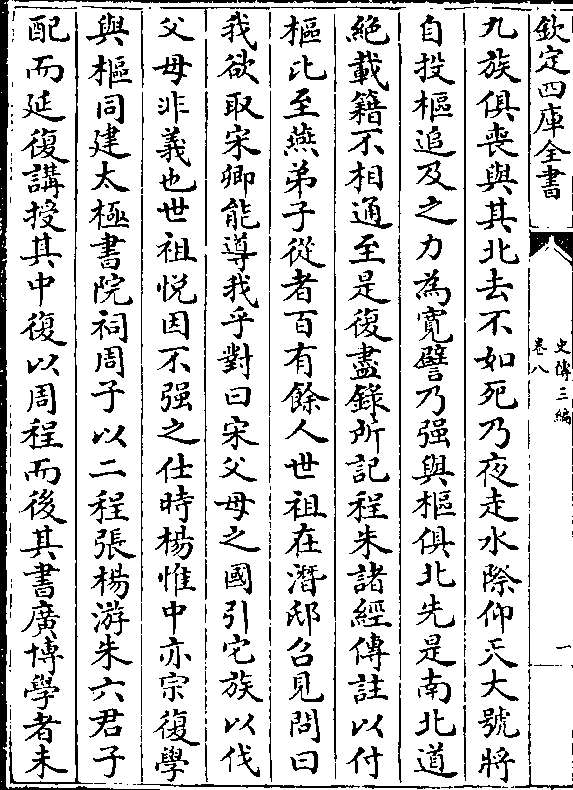 欽定四庫全書
史傳三編
卷八
一
九族俱喪與其北去不如死乃夜走水際仰天大號將
自投樞追及之力為寛譬乃强與樞俱北先是南北道
絶載籍不相通至是復盡錄所記程朱諸經傳註以付
樞比至燕弟子從者百有餘人世祖在潛邸召見問曰
我欲取宋卿能導我乎對曰宋父母之國引它族以伐
父母非義也世祖悦因不强之仕時楊惟中亦宗復學
與樞同建太極書院祠周子以二程張楊游朱六君子
配而延復講授其中復以周程而後其書廣博學者未